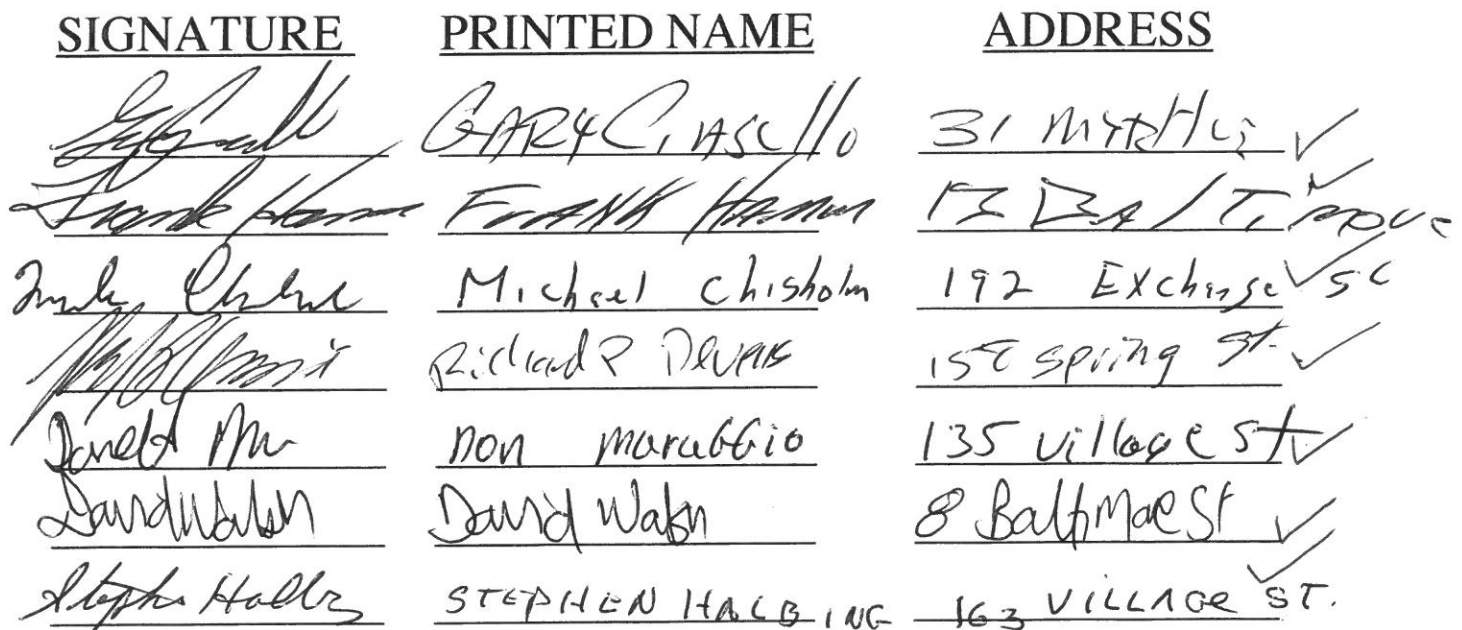 SIGNATURE PRINTED NAME ADDRESS
GARY CIASCIlo 31 MYRtle ✓
Frank Hannan FRANK Hannan 13 BAlTimore ✓
Michael Chisholm 192 Exchange St ✓
Richard P Devens 158 spring st. ✓
Donald Don maraGGio 135 village St ✓
David Walsh David Walsh 8 Baltimore St ✓
Stephen Halbing STEPHEN HALBING 163 VILLAGE ST. ✓